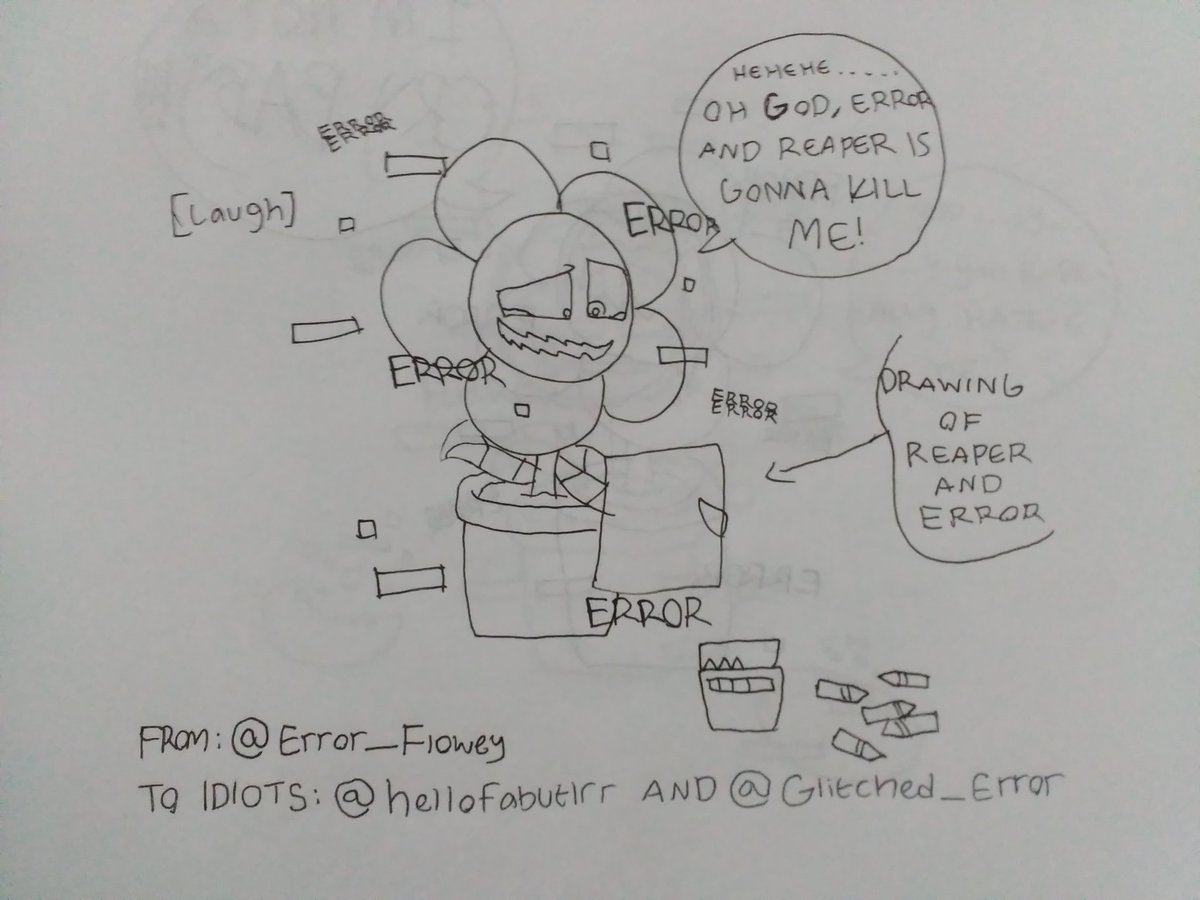 HEHEHE.....
OH GOD, ERROR
AND REAPER IS
GONNA KILL
ME!
ERROR
ERROR
[Laugh]
ERROR
ERROR
ERROR
ERROR
ERROR
DRAWING
OF
REAPER
AND
ERROR
ERROR
FROM: @Error_Flowey
TO IDIOTS: @hellofabutlrr AND @Glitched_Error